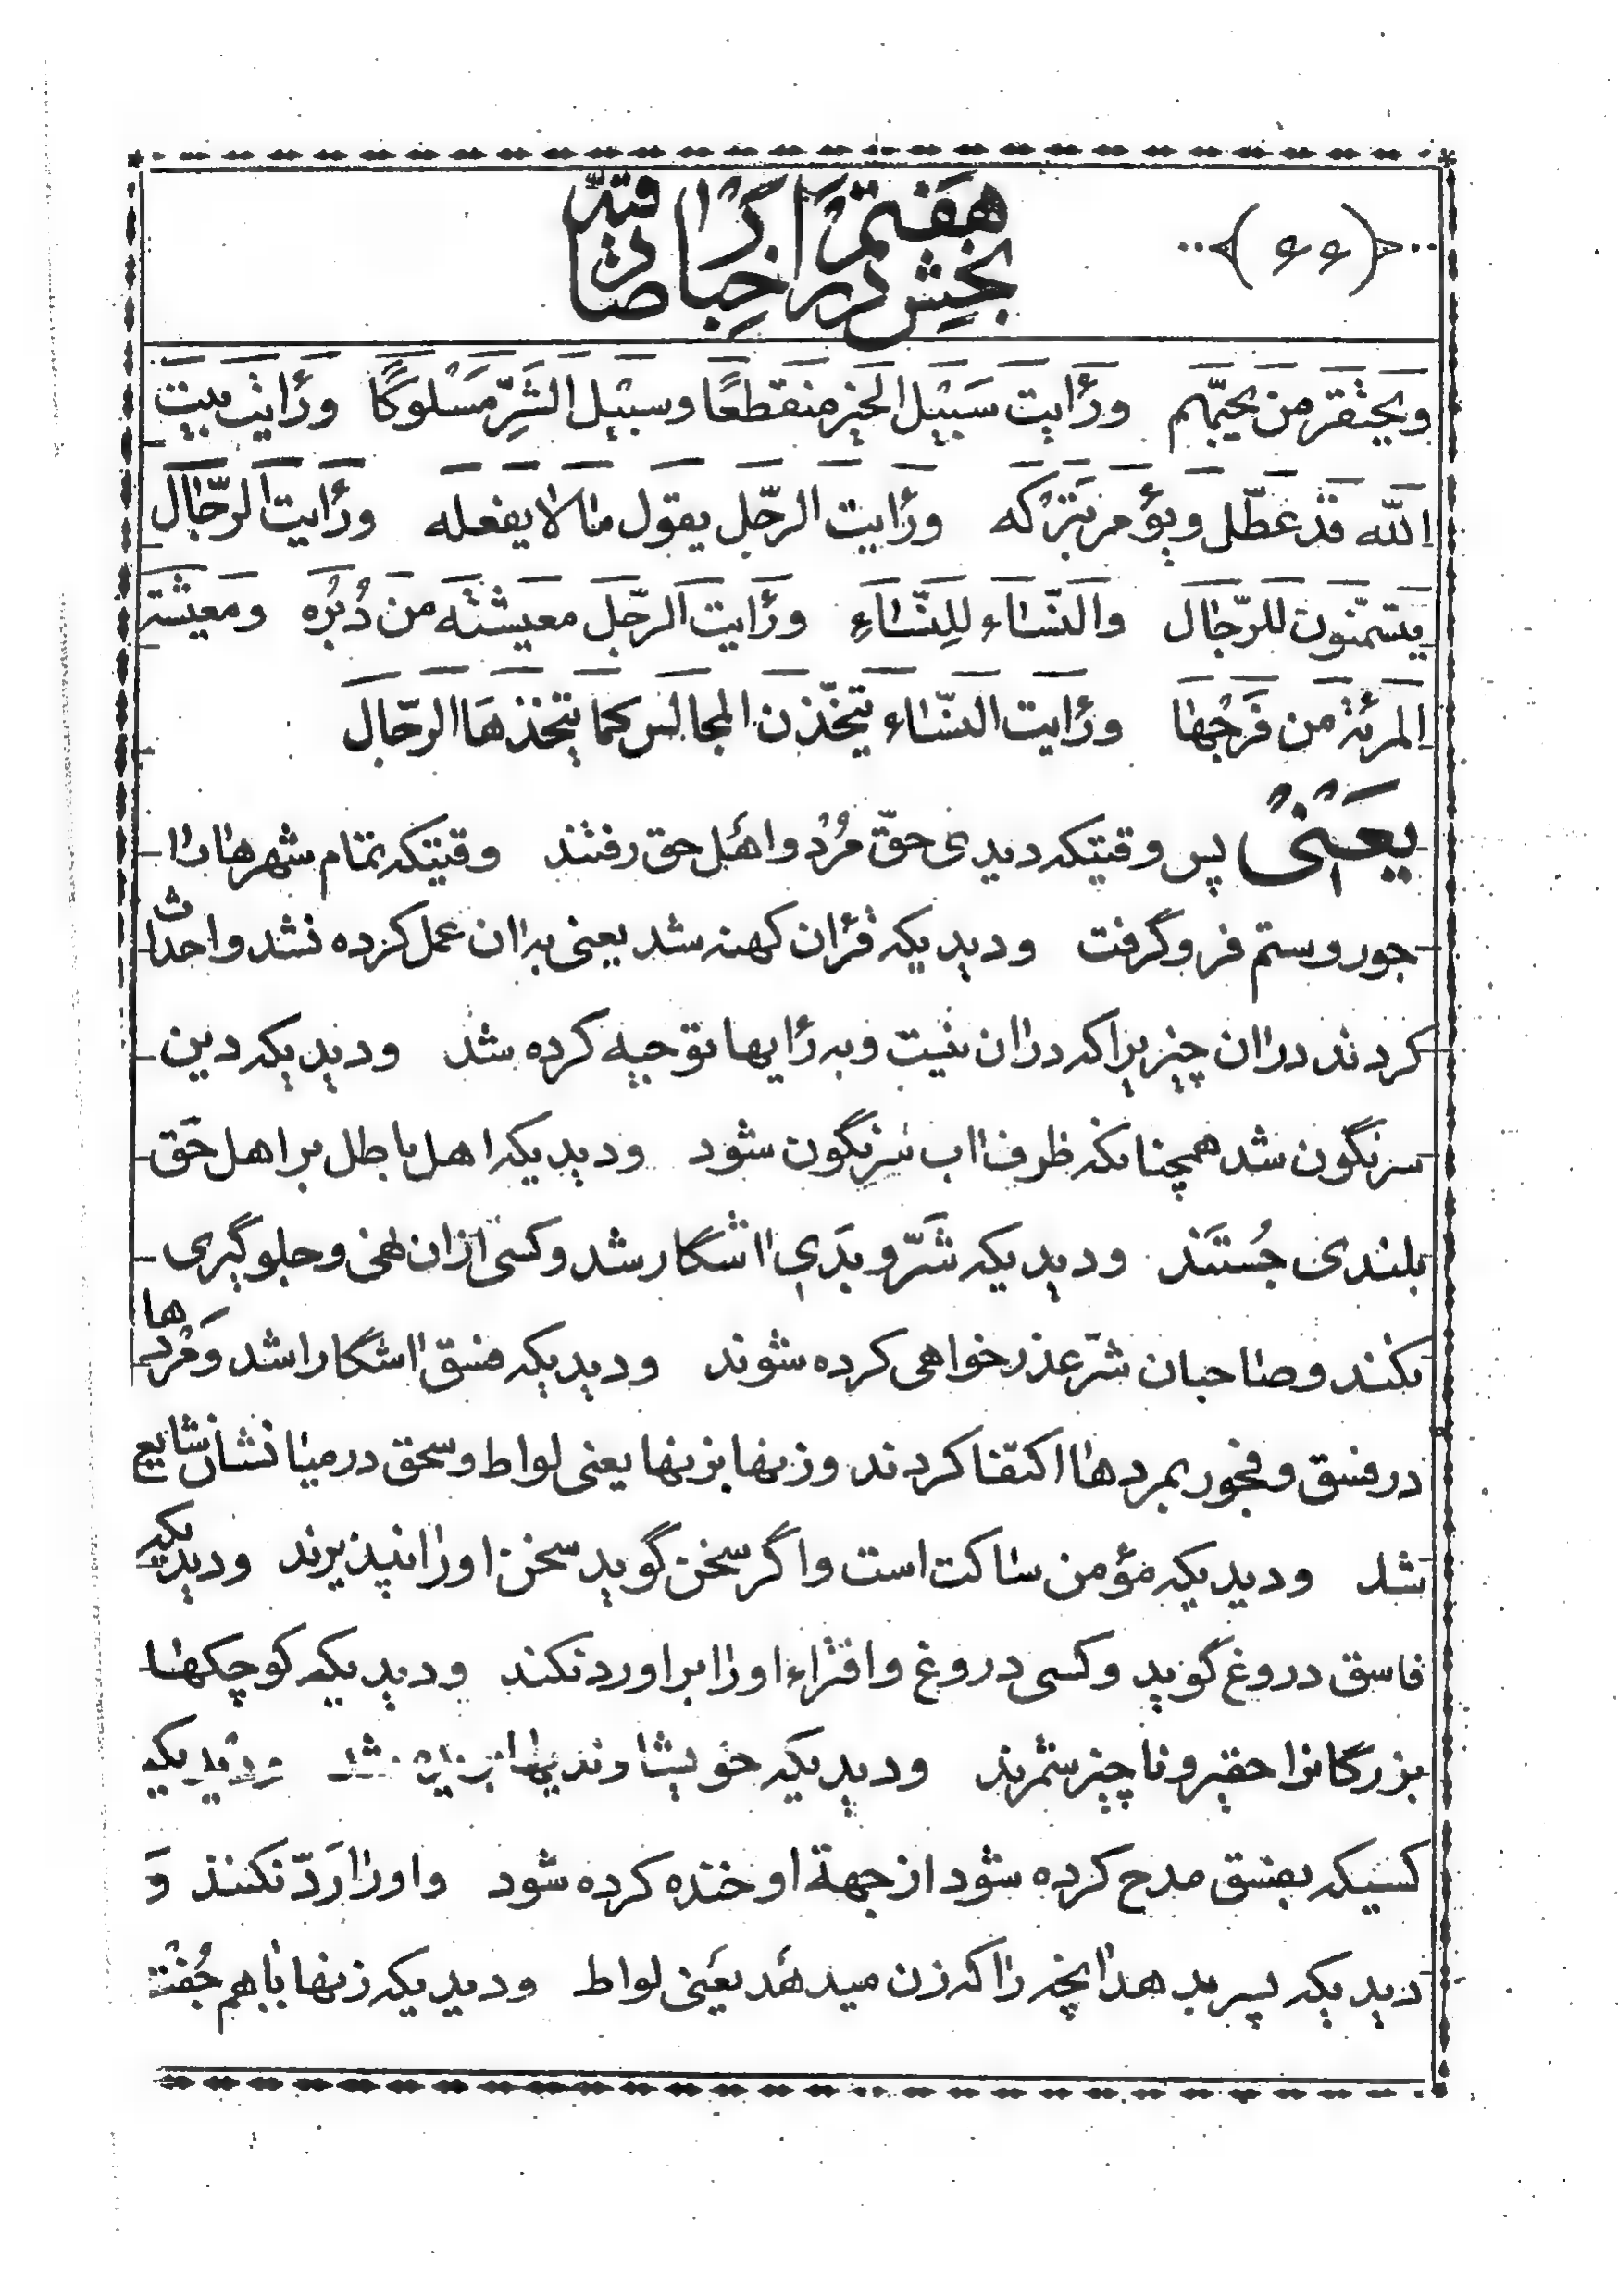 ﴿۶۶﴾
بخش هفتم در اخبار صادقیه
ویحتقر من یحبّهم ورأیت سبیل الخیر منقطعًا وسبیل الشّرِّ مسلوکًا ورأیت بیت
اللّه قد عطّل ویؤمر بترکه ورأیت الرّجل یقول مالا یفعله ورأیت الرّجال
یتسمّنون للرّجال والنّساء للنّساءِ ورأیت الرّجل معیشته من دُبُره ومعیشة
المرئة من فرجها ورأیت النّساء یتخّذن المجالس کما یتخذها الرّجال
یعنی پس وقتیکه دیدی حقّ مُرْد واهل حق رفتند وقتیکه تمام شهرها را
جور و ستم فرو گرفت ودیدیکه قرْان کهنه شد یعنی به ان عمل کرده نشد واحداث
کردند در ان چیزیرا که در ان نیست وبه رأیها توجیه کرده شد ودیدیکه دین
سرنگون شد همچنانکه ظرف اب سرنگون شود ودیدیکه اهل باطل بر اهل حَق
بلندی جُستند ودیدیکه شَرّ و بَدی اشکار شد وکسی از ان نهی و جلوگیری
نکند وصاحبان شرّ عذر خواهی کرده شوند ودیدیکه فسق اشکارا شد ومَرْدها
در فسق وفجور بمردها اکتفا کردند وزنها بزنها یعنی لواط وسحق در میانشان شایع
شد ودیدیکه مؤمن ساکت است واگر سخن گوید سخن او را نپذیرند ودیدیکه
فاسق دروغ گوید وکسی دروغ وافتراء او را بر او رد نکند ودیدیکه کوچکها
بزرگانرا حقیر و ناچیز شمرند ودیدیکه خویشاوندیها بریده شد ودیدیکه
کسیکه بفسق مدح کرده شود از جهة او خنده کرده شود واو را رَدّ نکنند وَ
دیدیکه پسر بدهد انچه را که زن میدهد یعنی لواط ودیدیکه زنها با هم جُفْت